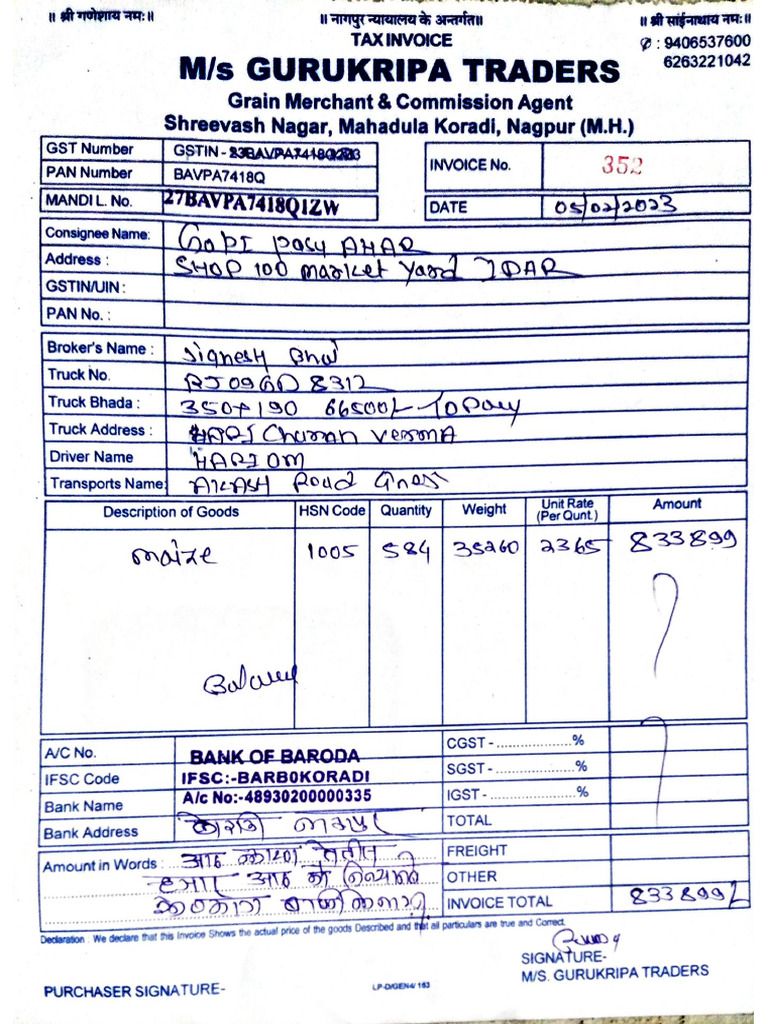 ॥ श्री गणेशाय नमः॥
॥ नागपुर न्यायालय के अन्तर्गत॥
॥ श्री सांईनाथाय नमः॥
TAX INVOICE
✆ : 9406537600
6263221042
M/s GURUKRIPA TRADERS
Grain Merchant & Commission Agent
Shreevash Nagar, Mahadula Koradi, Nagpur (M.H.)
GST Number GSTIN -
PAN Number BAVPA7418Q
INVOICE No. 352
MANDI L. No. 27BAVPA7418Q1ZW
DATE 05/02/2023
Consignee Name: Gopi AHAR
Address : SHOP 100 market yard IDAR
GSTIN/UIN :
PAN No. :
Broker's Name : Jignesh Bhai
Truck No. RJ09GD8312
Truck Bhada : 350+190 66500/- To Pay
Truck Address : HARI Charan verma
Driver Name HARIOM
Transports Name: AKASH Road
Description of Goods HSN Code Quantity Weight Unit Rate (Per Qunt.) Amount
maize 1005 584 35260 2365 833899
A/C No. BANK OF BARODA
IFSC Code IFSC:-BARB0KORADI
Bank Name A/c No:-48930200000335
Bank Address कोराडी नागपुर
CGST - ....................%
SGST - ....................%
IGST - ....................%
TOTAL
Amount in Words : आठ लाख तेतीस
हजार आठ सो निन्यानवे
FREIGHT
OTHER
INVOICE TOTAL 833899/-
Declaration : We declare that this Invoice Shows the actual price of the goods Described and that all particulars are true and Correct.
SIGNATURE-
M/S. GURUKRIPA TRADERS
PURCHASER SIGNATURE-
LP-D/GEN4/ 153